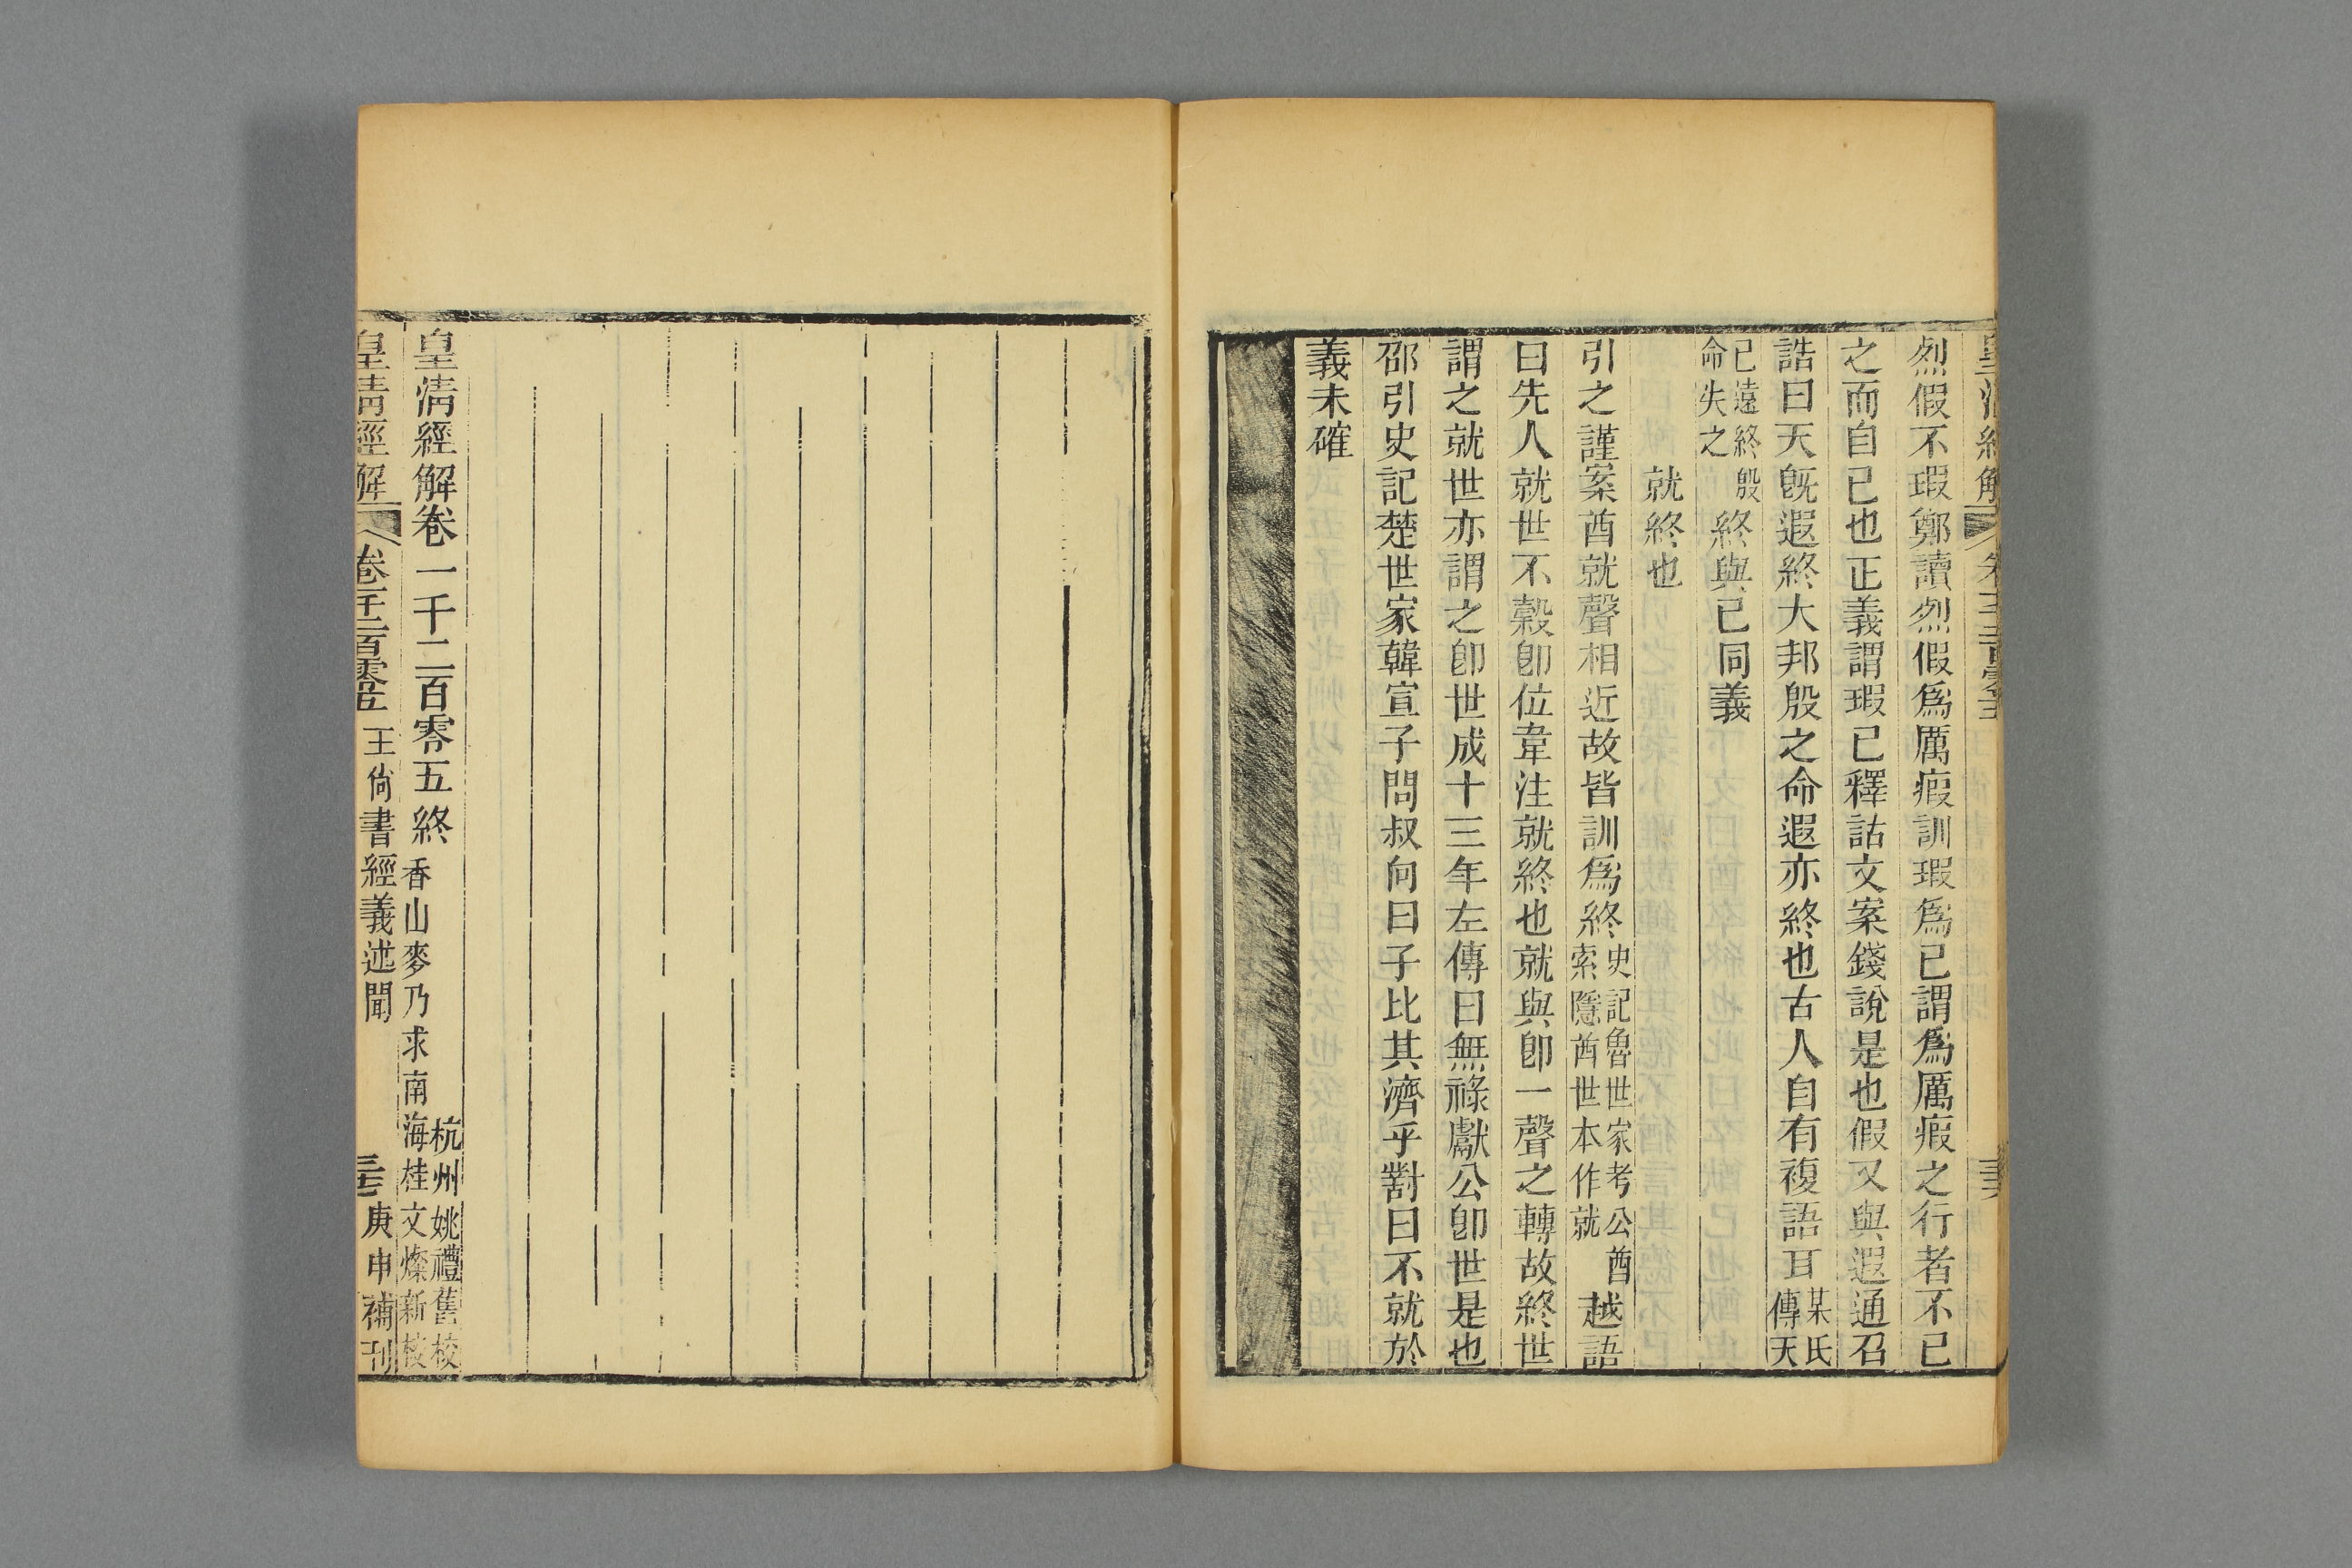 皇清經解
烈假不瑕鄭讀烈假爲厲瘕訓瑕爲已謂爲厲瘕之行者不已
之而自已也正義謂瑕已釋詁文案錢說是也假又與遐通召
誥曰天旣遐終大邦殷之命遐亦終也古人自有複語耳某氏傳天
已遠終殷命失之終與已同義
就終也
引之謹案酋就聲相近故皆訓爲終史記魯世家考公酋索隱酋世本作就越語
曰先人就世不穀卽位韋注就終也就與卽一聲之轉故終世
謂之就世亦謂之卽世成十三年左傳曰無祿獻公卽世是也
邵引史記楚世家韓宣子問叔向曰子比其濟乎對曰不就於
義未確
皇清經解卷一千二百零五終
杭州姚禮舊校
香山麥乃求南海桂文燦新校
皇清經解 卷一千二百零五 王尙書經義述聞 庚申補刊